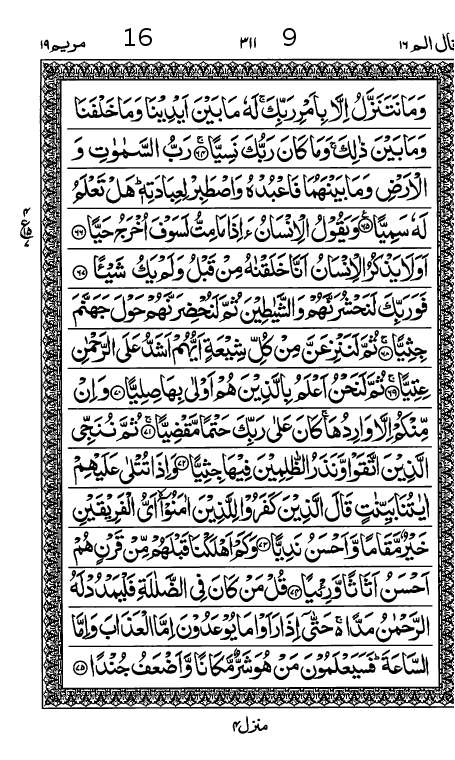 قال الم ١٦ 9 ٣١١ 16 مريم ١٩
وَمَا نَتَنَزَّلُ اِلَّا بِاَمْرِ رَبِّكَ ۚ لَهٗ مَا بَيْنَ اَيْدِيْنَا وَمَا خَلْفَنَا
وَمَا بَيْنَ ذٰلِكَ ۚ وَمَا كَانَ رَبُّكَ نَسِيًّا ۚ﴿٦٤﴾ رَبُّ السَّمٰوٰتِ وَ
الْاَرْضِ وَمَا بَيْنَهُمَا فَاعْبُدْهُ وَاصْطَبِرْ لِعِبَادَتِهٖ ؕ هَلْ تَعْلَمُ
لَهٗ سَمِيًّا ﴿٦٥﴾ وَيَقُوْلُ الْاِنْسَانُ ءَاِذَا مَا مِتُّ لَسَوْفَ اُخْرَجُ حَيًّا ﴿٦٦﴾
اَوَلَا يَذْكُرُ الْاِنْسَانُ اَنَّا خَلَقْنٰهُ مِنْ قَبْلُ وَلَمْ يَكُ شَيْـًٔا ﴿٦٧﴾
فَوَرَبِّكَ لَنَحْشُرَنَّهُمْ وَالشَّيٰطِيْنَ ثُمَّ لَنُحْضِرَنَّهُمْ حَوْلَ جَهَنَّمَ
جِثِيًّا ۚ﴿٦٨﴾ ثُمَّ لَنَنْزِعَنَّ مِنْ كُلِّ شِيْعَةٍ اَيُّهُمْ اَشَدُّ عَلَى الرَّحْمٰنِ
عِتِيًّا ۚ﴿٦٩﴾ ثُمَّ لَنَحْنُ اَعْلَمُ بِالَّذِيْنَ هُمْ اَوْلٰى بِهَا صِلِيًّا ﴿٧٠﴾ وَاِنْ
مِّنْكُمْ اِلَّا وَارِدُهَا ۚ كَانَ عَلٰى رَبِّكَ حَتْمًا مَّقْضِيًّا ۚ﴿٧١﴾ ثُمَّ نُنَجِّى
الَّذِيْنَ اتَّقَوْا وَّنَذَرُ الظّٰلِمِيْنَ فِيْهَا جِثِيًّا ﴿٧٢﴾ وَاِذَا تُتْلٰى عَلَيْهِمْ
اٰيٰتُنَا بَيِّنٰتٍ قَالَ الَّذِيْنَ كَفَرُوْا لِلَّذِيْنَ اٰمَنُوْۤا اَىُّ الْفَرِيْقَيْنِ
خَيْرٌ مَّقَامًا وَّاَحْسَنُ نَدِيًّا ﴿٧٣﴾ وَكَمْ اَهْلَكْنَا قَبْلَهُمْ مِّنْ قَرْنٍ هُمْ
اَحْسَنُ اَثَاثًا وَّرِءْيًا ﴿٧٤﴾ قُلْ مَنْ كَانَ فِى الضَّلٰلَةِ فَلْيَمْدُدْ لَهُ
الرَّحْمٰنُ مَدًّا ۚ۬ حَتّٰٓى اِذَا رَاَوْا مَا يُوْعَدُوْنَ اِمَّا الْعَذَابَ وَاِمَّا
السَّاعَةَ ؕ فَسَيَعْلَمُوْنَ مَنْ هُوَ شَرٌّ مَّكَانًا وَّاَضْعَفُ جُنْدًا ﴿٧٥﴾
منزل ٤